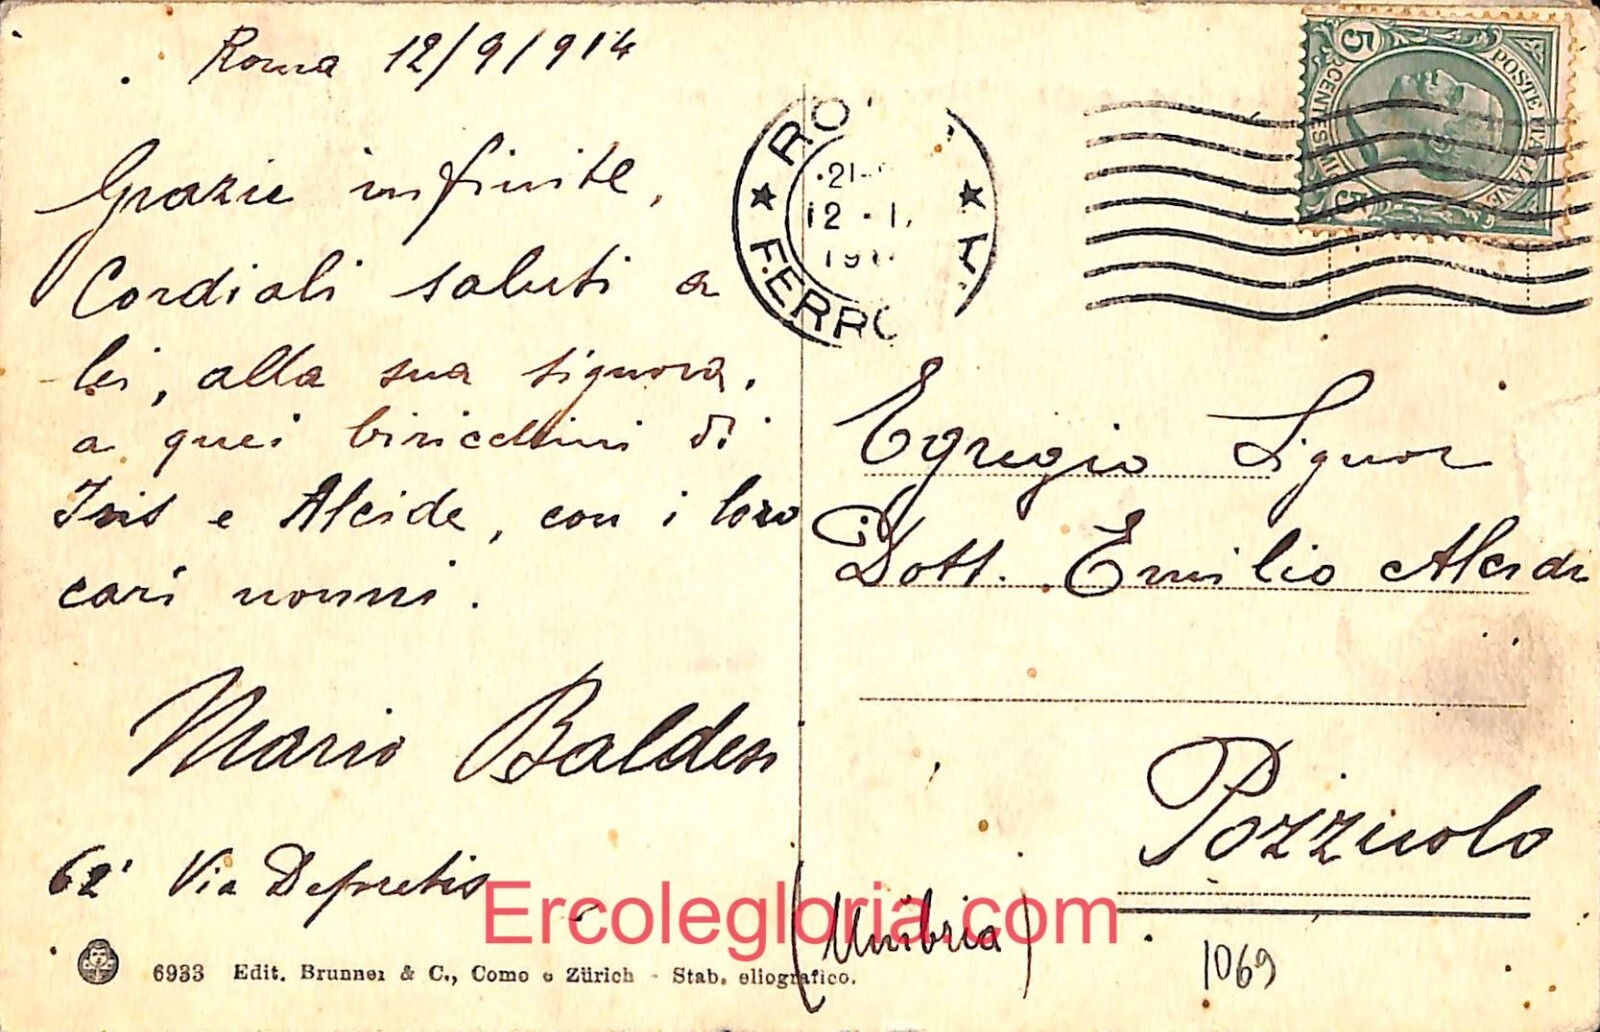 Roma 12/9/914
Grazie infinite,
Cordiali saluti a
lei, alla sua signora,
a quei biricchini di
Iris e Alcide, con i loro
cari nonni.
Mario Baldesi
62 Via Depretis
6933 Edit. Brunner & C., Como e Zürich - Stab. eliografico.
RO
21
12 - 1
191
FERRO
POSTE ITALIANE
CENTESIMI
5
5
Egregio Signor
Dott. Emilio
Pozzuolo
(Umbria)
1069
Ercolegloria.com